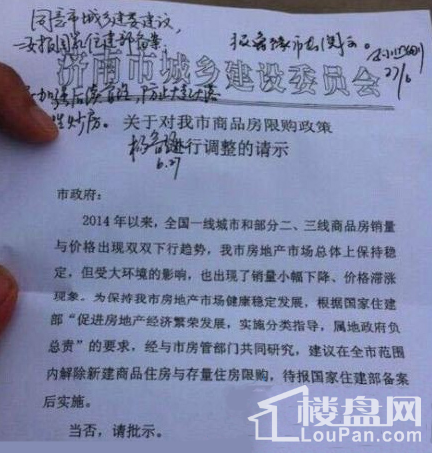 同意市城乡建委建议，
济南市城乡建设委员会
关于对我市商品房限购政策
进行调整的请示
6.27
27/6
市政府：
2014年以来，全国一线城市和部分二、三线商品房销量
与价格出现双双下行趋势，我市房地产市场总体上保持稳
定，但受大环境的影响，也出现了销量小幅下降、价格滞涨
现象。为保持我市房地产市场健康稳定发展，根据国家住建
部“促进房地产经济繁荣发展，实施分类指导，属地政府负
总责”的要求，经与市房管部门共同研究，建议在全市范围
内解除新建商品住房与存量住房限购，待报国家住建部备案
后实施。
当否，请批示。
楼盘网
LouPan.com